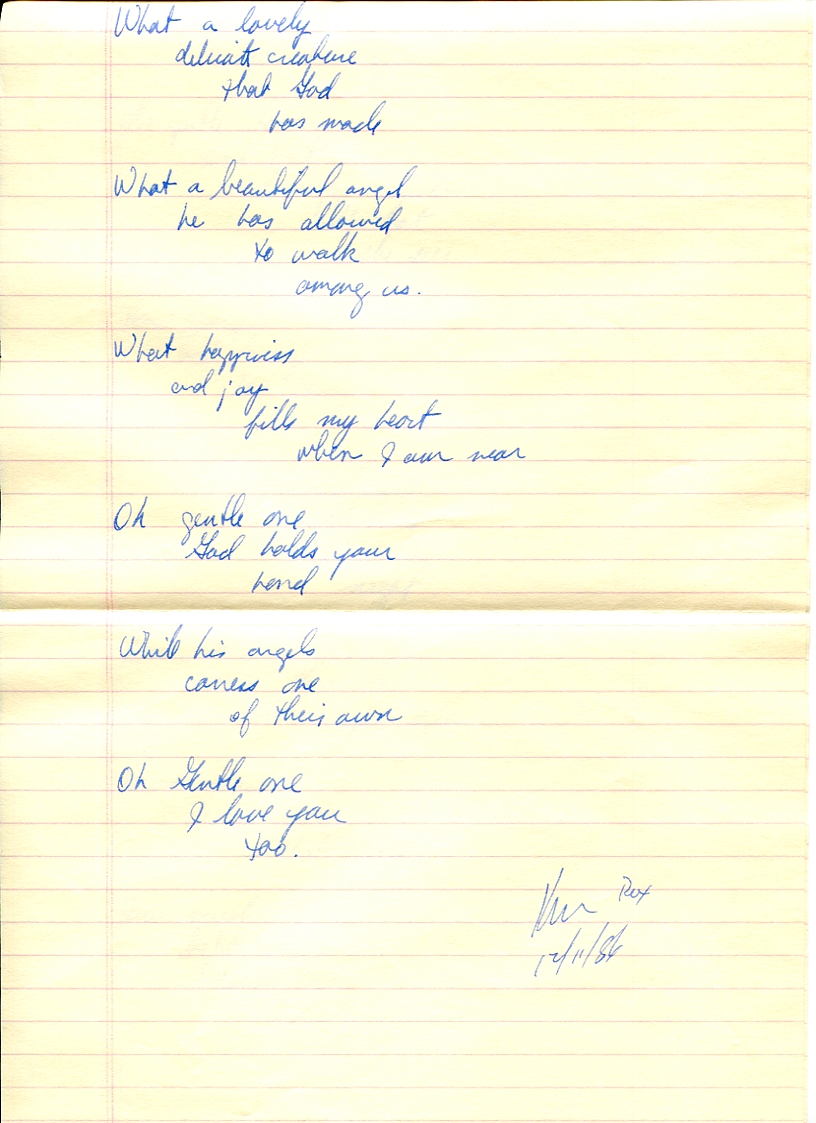 What a lovely
delicate creature
that God
has made
What a beautiful angel
he has allowed
to walk
among us.
What happiness
and joy
fills my heart
when I am near
Oh gentle one
God holds your
hand
While his angels
caress one
of their own
Oh Gentle one
I love you
too.
12/11/86